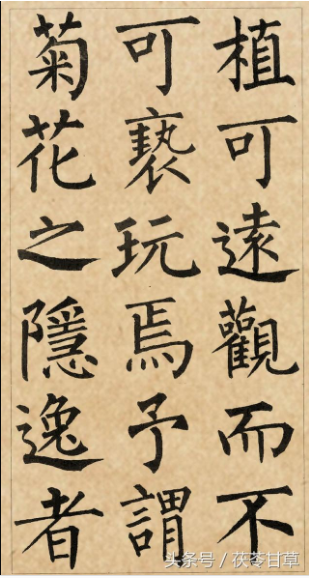 植可遠觀而不
可褻玩焉予謂
菊花之隱逸者
头条号／茯苓甘草